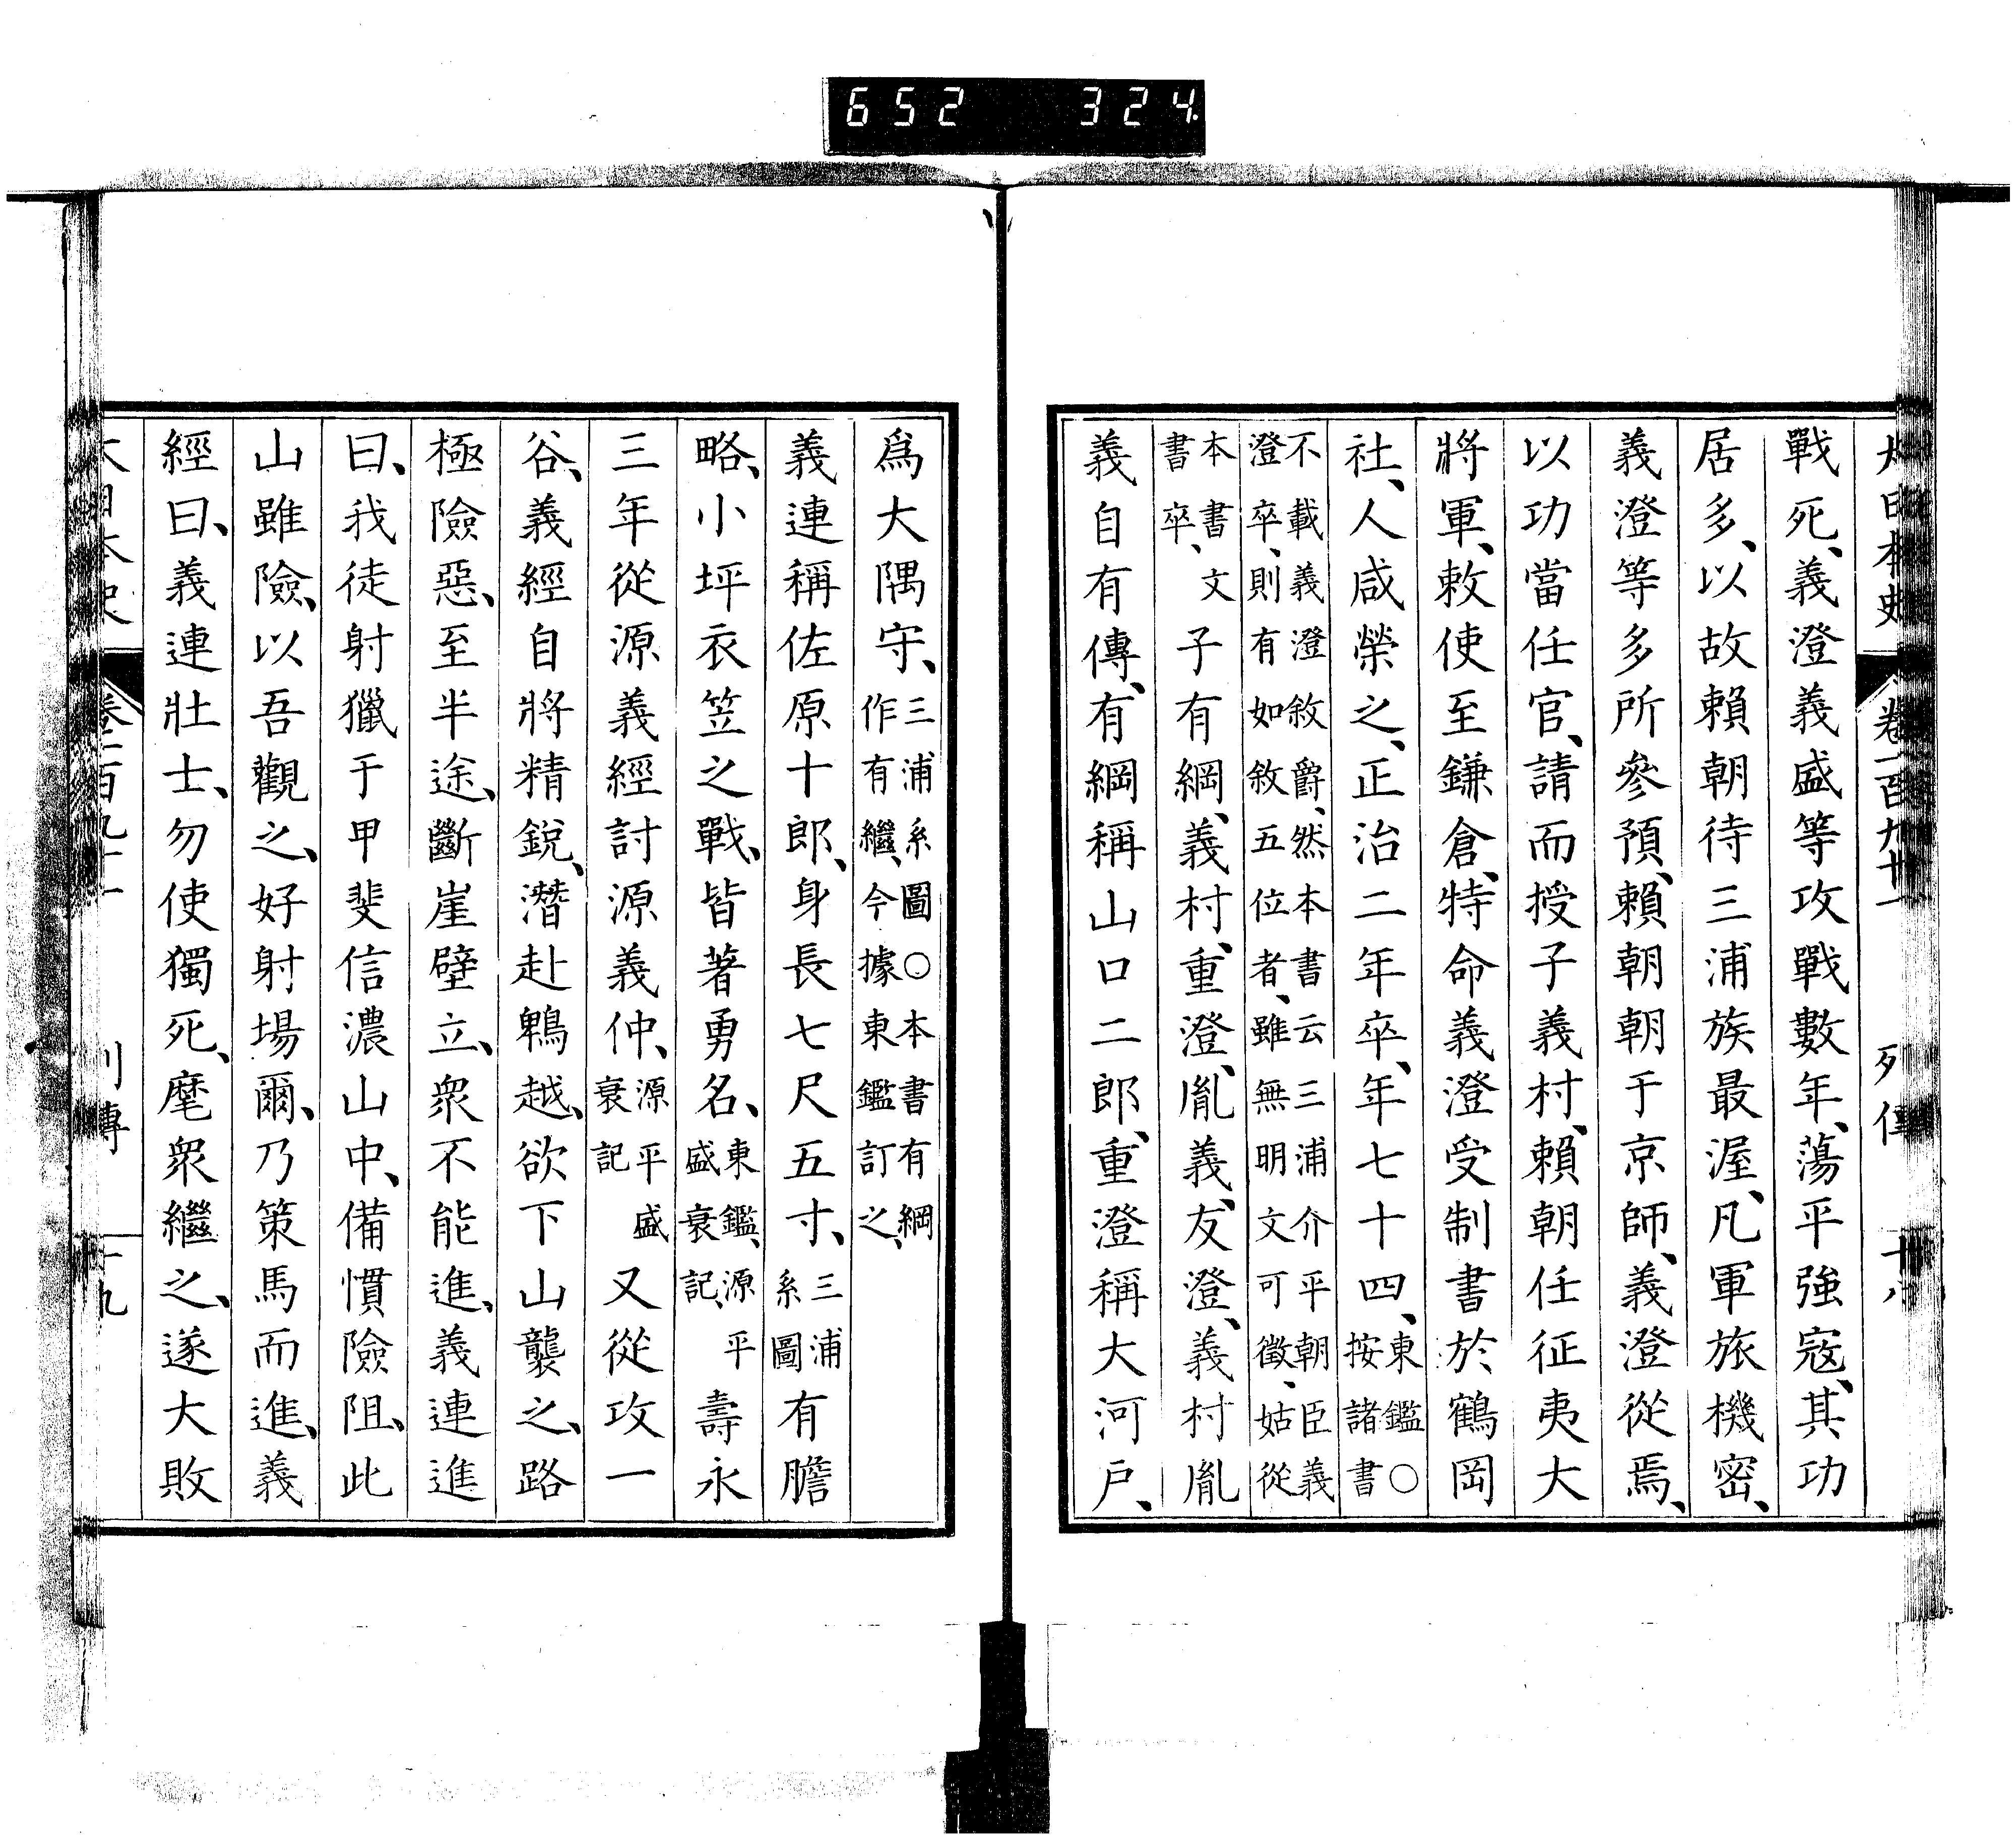 652 324
大日本史 卷一百九十一 列傳
戰死、義澄義盛等攻戰數年、蕩平強寇、其功
居多、以故賴朝待三浦族最渥、凡軍旅機密、
義澄等多所參預、賴朝朝于京師、義澄從焉、
以功當任官、請而授子義村、賴朝任征夷大
將軍、敕使至鎌倉、特命義澄受制書於鶴岡
社、人咸榮之、正治二年卒、年七十四、東鑑○
按諸書
不載義澄敘爵、然本書云三浦介平朝臣義
澄卒、則有如敘五位者、雖無明文可徵、姑從
本書書文
書卒、子有綱、義村、重澄、胤義、友澄、義村胤
義自有傳、有綱稱山口二郎、重澄稱大河戸、
爲大隅守、三浦系圖○本書有綱
作有繼、今據東鑑訂之、
義連稱佐原十郎、身長七尺五寸、三浦
系圖有膽
略、小坪衣笠之戰、皆著勇名、東鑑、源平
盛衰記、壽永
三年從源義經討源義仲、源平盛
衰記又從攻一
谷、義經自將精銳、潛赴鵯越、欲下山襲之、路
極險惡、至半途、斷崖壁立、衆不能進、義連進
曰、我徒射獵于甲斐信濃山中、備慣險阻、此
山雖險、以吾觀之、好射場爾、乃策馬而進、義
經曰、義連壯士、勿使獨死、麾衆繼之、遂大敗
大日本史 卷一百九十一 列傳